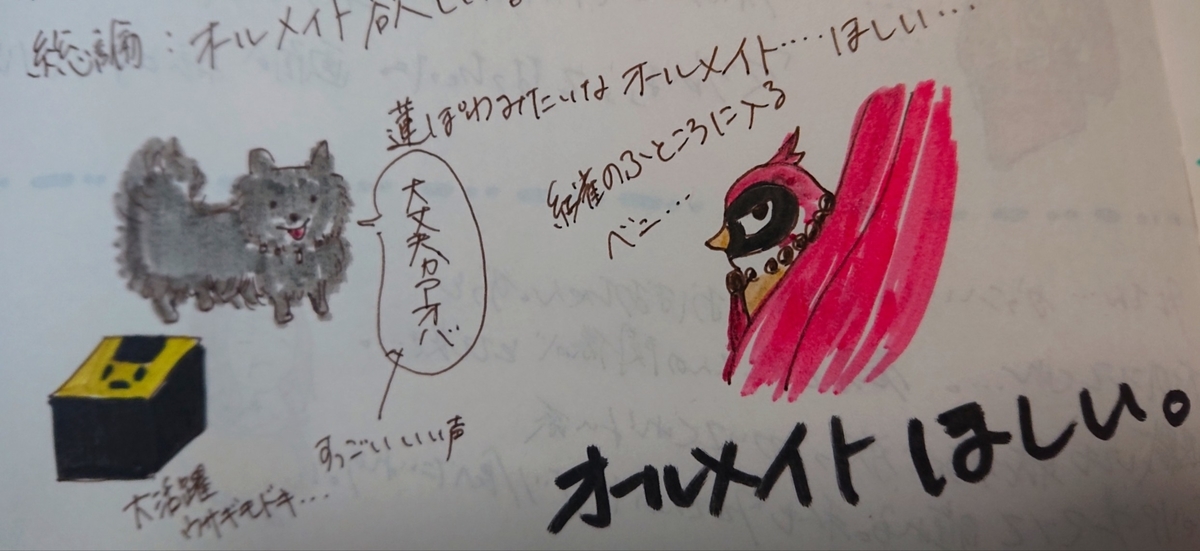 総評：オールメイト欲しい
蓮ぽわみたいなオールメイト…ほしい…
大丈夫かアオバ
すっごいいい声
紅雀のふところに入る
ベニ…
大活躍
ウサギモドキ…
オールメイトほしい。